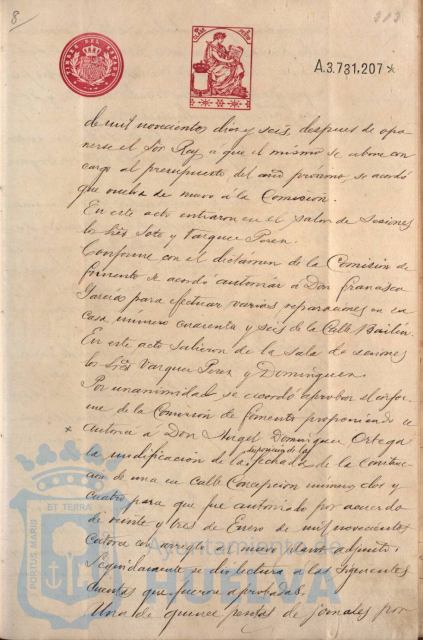 8
TIMBRE DEL ESTADO
A.3.731,207*
de mil novecientos diez y seis, despues de opo-
nerse el Sor Rey a que el mismo se abone con
cargo al presupuesto del año próximo, se acordó
que vuelva de nuevo á la Comision.
En este acto entraron en el salon de Sesiones
los Sres Soto y Vazquez Perez.
Conforme con el dictámen de la Comisión de
fomento se acordó autorizar á Don Francisco
García para efectuar varias reparaciones en su
casa número cuarenta y seis de la Calle Bailén.
En este acto salieron de la sala de sesiones
los Sres Vazquez Perez y Dominguez.
Por unanimidad se acordó aprobar el infor-
me de la Comisión de fomento proponiendo se
autorice á Don Angel Dominguez Ortega
la modificacion de la fachada de la Construc-
cion de una en calle Concepcion número dos y
cuatro para que fue autorizado por acuerdo
de veinte y tres de Enero de mil novecientos
catorce con arreglo al nuevo plano adjunto.
Seguidamente se dio lectura a las siguientes
cuentas que fueron aprobadas.
Una de quince pesetas de jornales por
PORTUS MARIS ET TERRAE
Ayuntamiento de
HUELVA